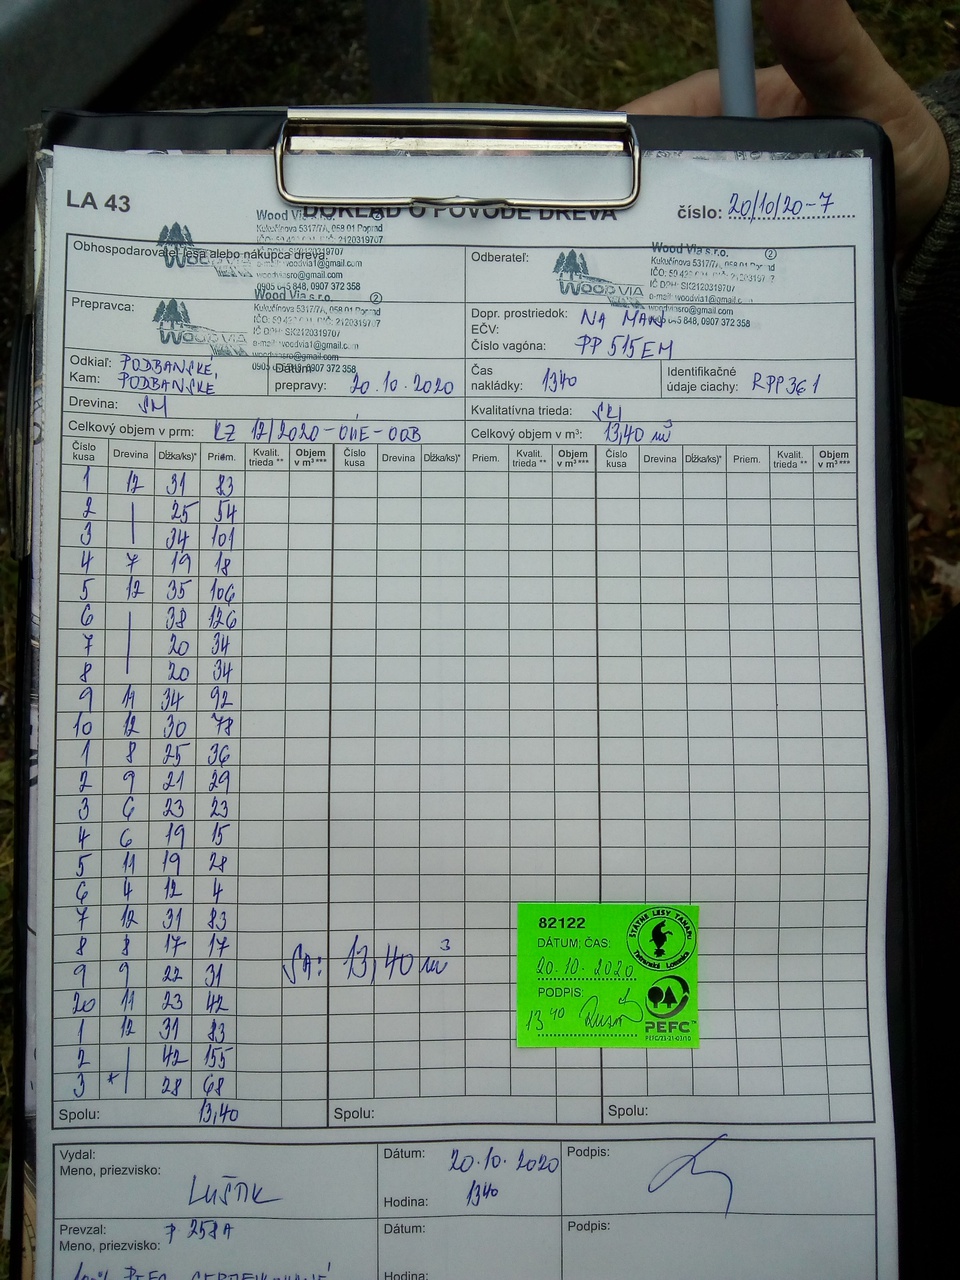 LA 43
DOKLAD O PÔVODE DREVA
číslo: 20/10/20-7
Obhospodarovateľ lesa alebo nákupca dreva:
Wood Via s.r.o. 2
Kukučínova 5317/7A, 058 01 Poprad
e-mail: woodvia1@gmail.com
woodviasro@gmail.com
0905 045 848, 0907 372 358
Odberateľ:
WOOD VIA
Wood Via s.r.o. 2
Kukučínova 5317/7A, 058 01 Poprad
IČ DPH: SK2120319707
e-mail: woodvia1@gmail.com
woodviasro@gmail.com
0905 045 848, 0907 372 358
Prepravca:
WOOD VIA
Wood Via s.r.o. 2
Kukučínova 5317/7A, 058 01 Poprad
IČ DPH: SK2120319707
e-mail: woodvia1@gmail.com
woodviasro@gmail.com
0905 045 848, 0907 372 358
Dopr. prostriedok: NA MAN
EČV:
Číslo vagóna: PP 515EM
Odkiaľ: PODBANSKÉ,
Kam: PODBANSKÉ
Dátum prepravy: 20.10.2020
Čas nakládky: 1340
Identifikačné údaje ciachy: RPP361
Drevina: SM
Kvalitatívna trieda:
Celkový objem v prm:
Celkový objem v m³: 13,40 m³
Číslo kusa Drevina Dĺžka/ks)* Priem. Kvalit. trieda ** Objem v m³ *** Číslo kusa Drevina Dĺžka/ks)* Priem. Kvalit. trieda ** Objem v m³ *** Číslo kusa Drevina Dĺžka/ks)* Priem. Kvalit. trieda ** Objem v m³ ***
1 12 31 83
2 | 25 54
3 | 34 101
4 7 19 18
5 12 35 106
6 | 38 126
7 | 20 34
8 | 20 34
9 11 34 92
10 12 30 78
1 8 25 36
2 9 21 29
3 6 23 23
4 6 19 15
5 11 19 28
6 4 12 4
7 12 31 83
8 8 17 17
9 9 22 31
20 11 23 42
1 12 31 83
2 | 42 155
3 *| 28 68
13,40 m³
82122
DÁTUM; ČAS:
20.10.2020
PODPIS:
13 40
ŠTÁTNE LESY TANAPU
Tatranská Lomnica
PEFC™
PEFC/23-21-03/10
Spolu: 13,40 Spolu: Spolu:
Vydal:
Meno, priezvisko:
LUŠTIK
Dátum: 20.10.2020
Hodina: 1340
Podpis:
Prevzal: P 258A
Meno, priezvisko:
Dátum:
Podpis:
Hodina: